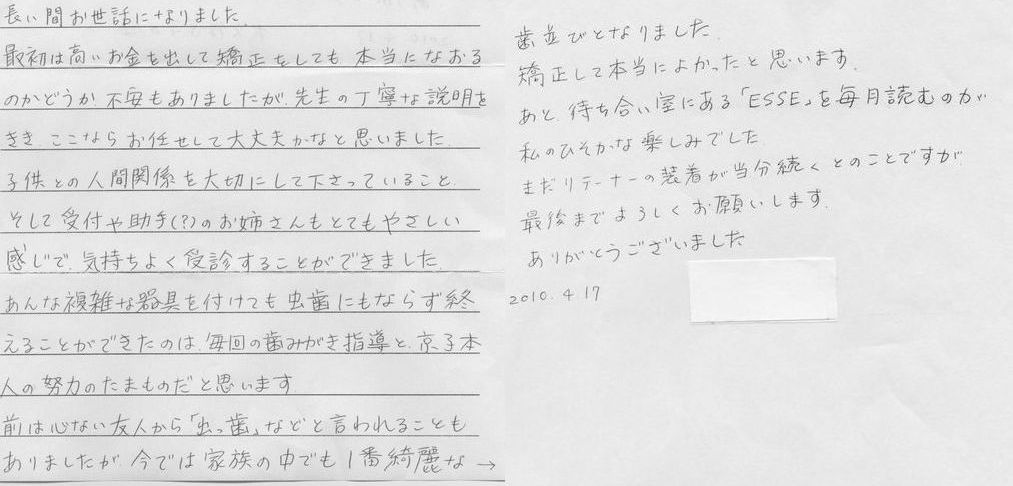 長い間お世話になりました.
最初は高いお金を出して矯正をしても本当になおる
のかどうか不安もありましたが、先生の丁寧な説明を
きき、ここならお任せして大丈夫かなと思いました.
子供との人間関係を大切にして下さっていること.
そして受付や助手(?)のお姉さんもとてもやさしい
感じで、気持ちよく受診することができました.
あんな複雑な器具を付けても虫歯にもならず終
えることができたのは、毎回の歯みがき指導と、京子本
人の努力のたまものだと思います.
前は心ない友人から「出っ歯」などと言われることも
ありましたが、今では家族の中でも1番綺麗な→
歯並びとなりました.
矯正して本当によかったと思います.
あと、待ち合い室にある「ESSE」を毎月読むのが
私のひそかな楽しみでした.
まだリテーナーの装着が当分続くとのことですが
最後までよろしくお願いします.
ありがとうございました
2010.4.17